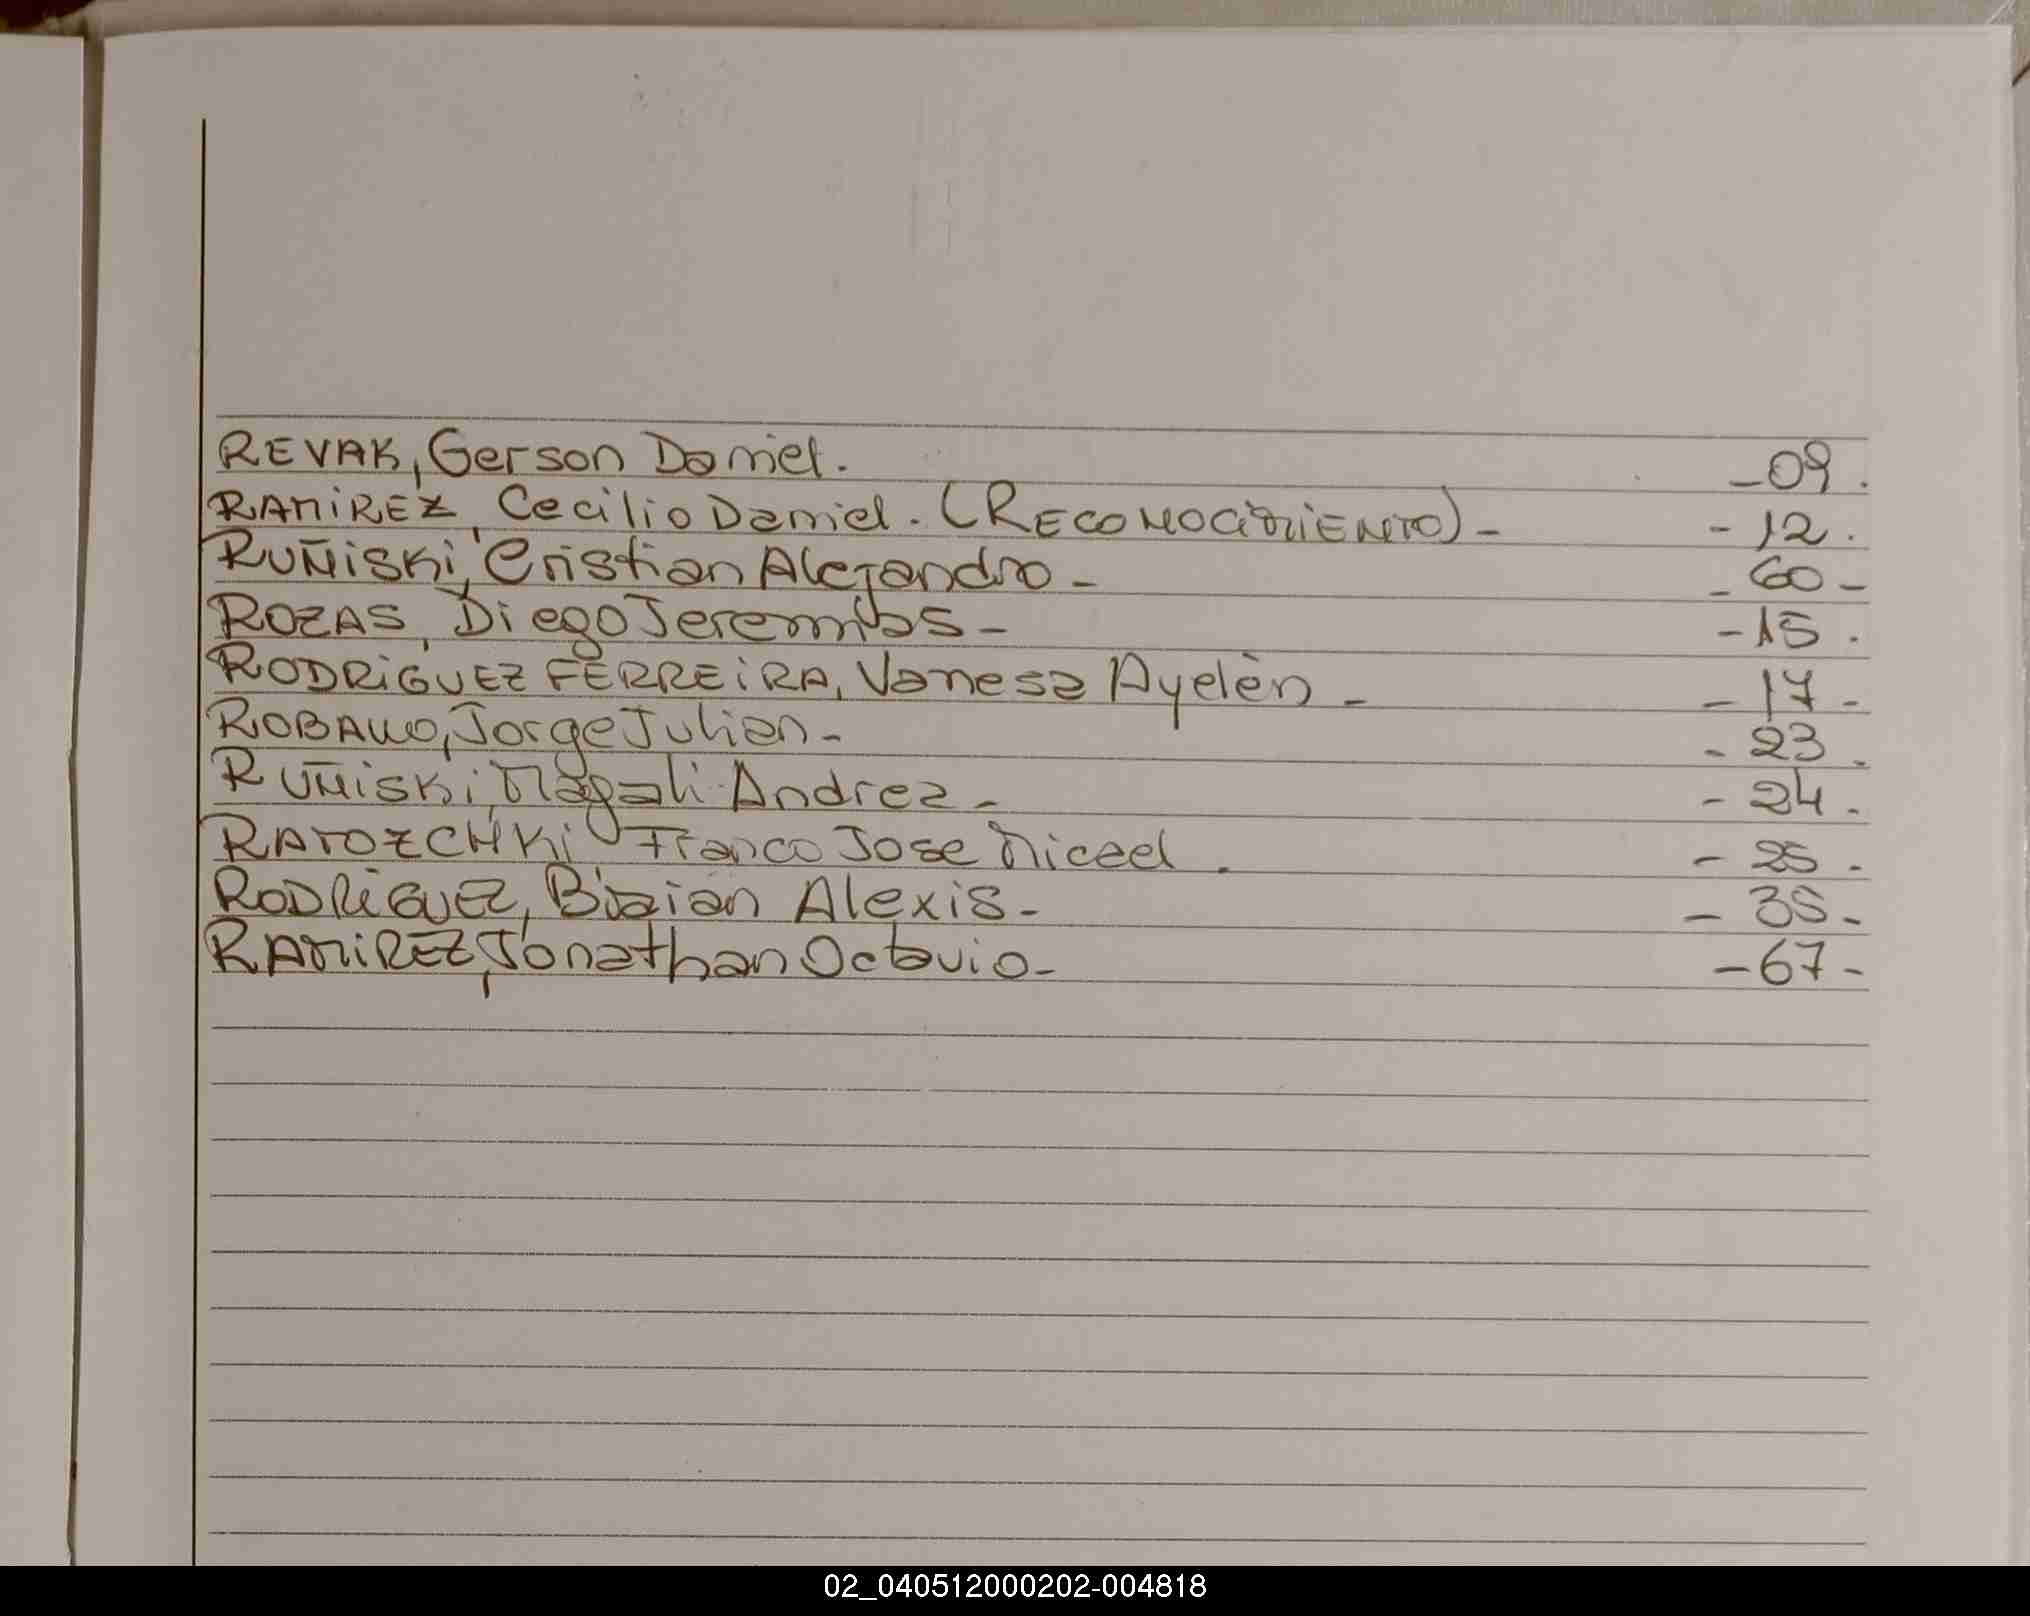 REVAK, Gerson Daniel. -09.
RAMIREZ, Cecilio Daniel. (RECONOCIMIENTO)- -12.
RUÑISKI, Cristian Alejandro- -60-
ROZAS, Diego Jeremías- -15.
RODRIGUEZ FERREIRA, Vanesa Ayelèn- -17-
ROBALLO, Jorge Julian- -23.
RUÑISKI, Magali Andrea- -24.
RATOZCHKI Franco Jose Micael. -25.
RODRIGUEZ, Alexis- -35-
RAMIREZ, Jonathan Octavio- -67-
02_040512000202-004818